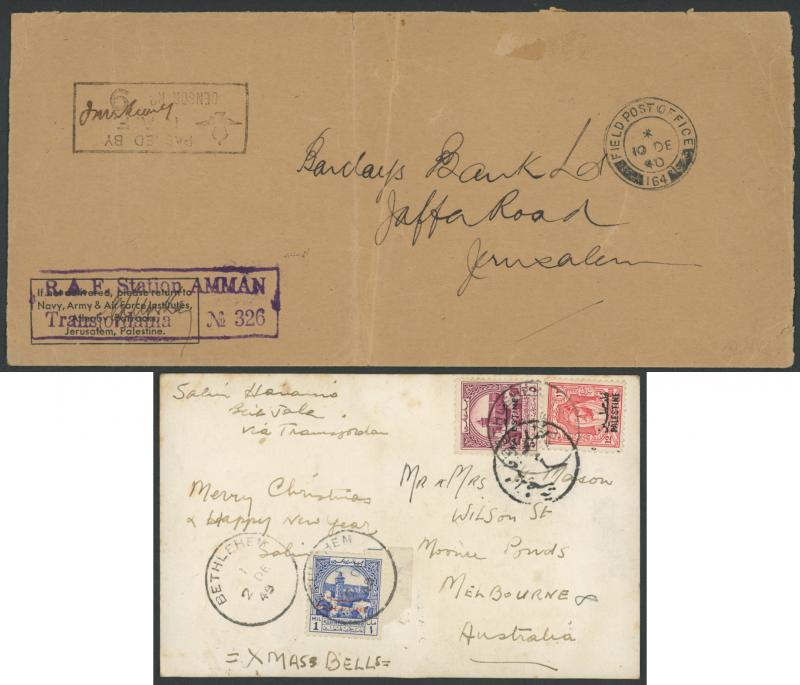 PASSED BY
CENSOR No.
FIELD POST OFFICE
*
10 DE
40
164
Barclays Bank Ld
Jaffa Road
Jerusalem
R.A.F. Station AMMAN
Transjordania № 326
If not delivered, please return to
Navy, Army & Air Force Institutes,
Jerusalem, Palestine.
Beit Jala
via Transjordan
PALESTINE
فلسطين
Merry Christmas
& Happy New Year
Salim
Mr & Mrs Mason
Wilson St
Moonee Ponds
MELBOURNE
Australia
BETHLEHEM
2 DE
49
HEM
MIL
1
١
= XMASS BELLS =